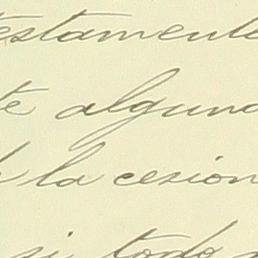 testamento
te alguna
la cesion
si todo